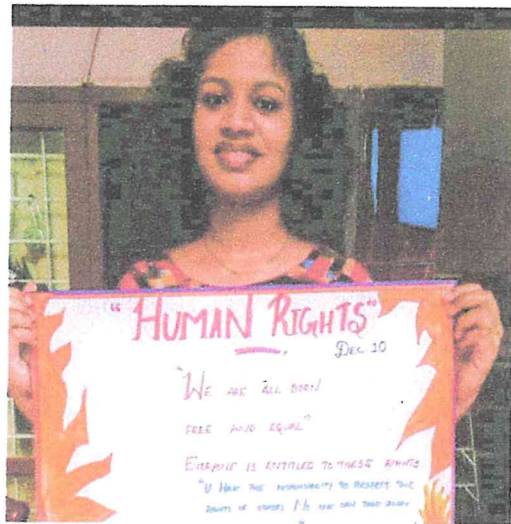 "HUMAN RIGHTS"
DEC 10
"WE ARE ALL BORN
FREE AND EQUAL"
EVERYONE IS ENTITLED TO THESE RIGHTS
"U HAVE THE RESPONSIBILITY TO RESPECT THE
RIGHTS OF OTHERS NO ONE CAN TAKE AWAY